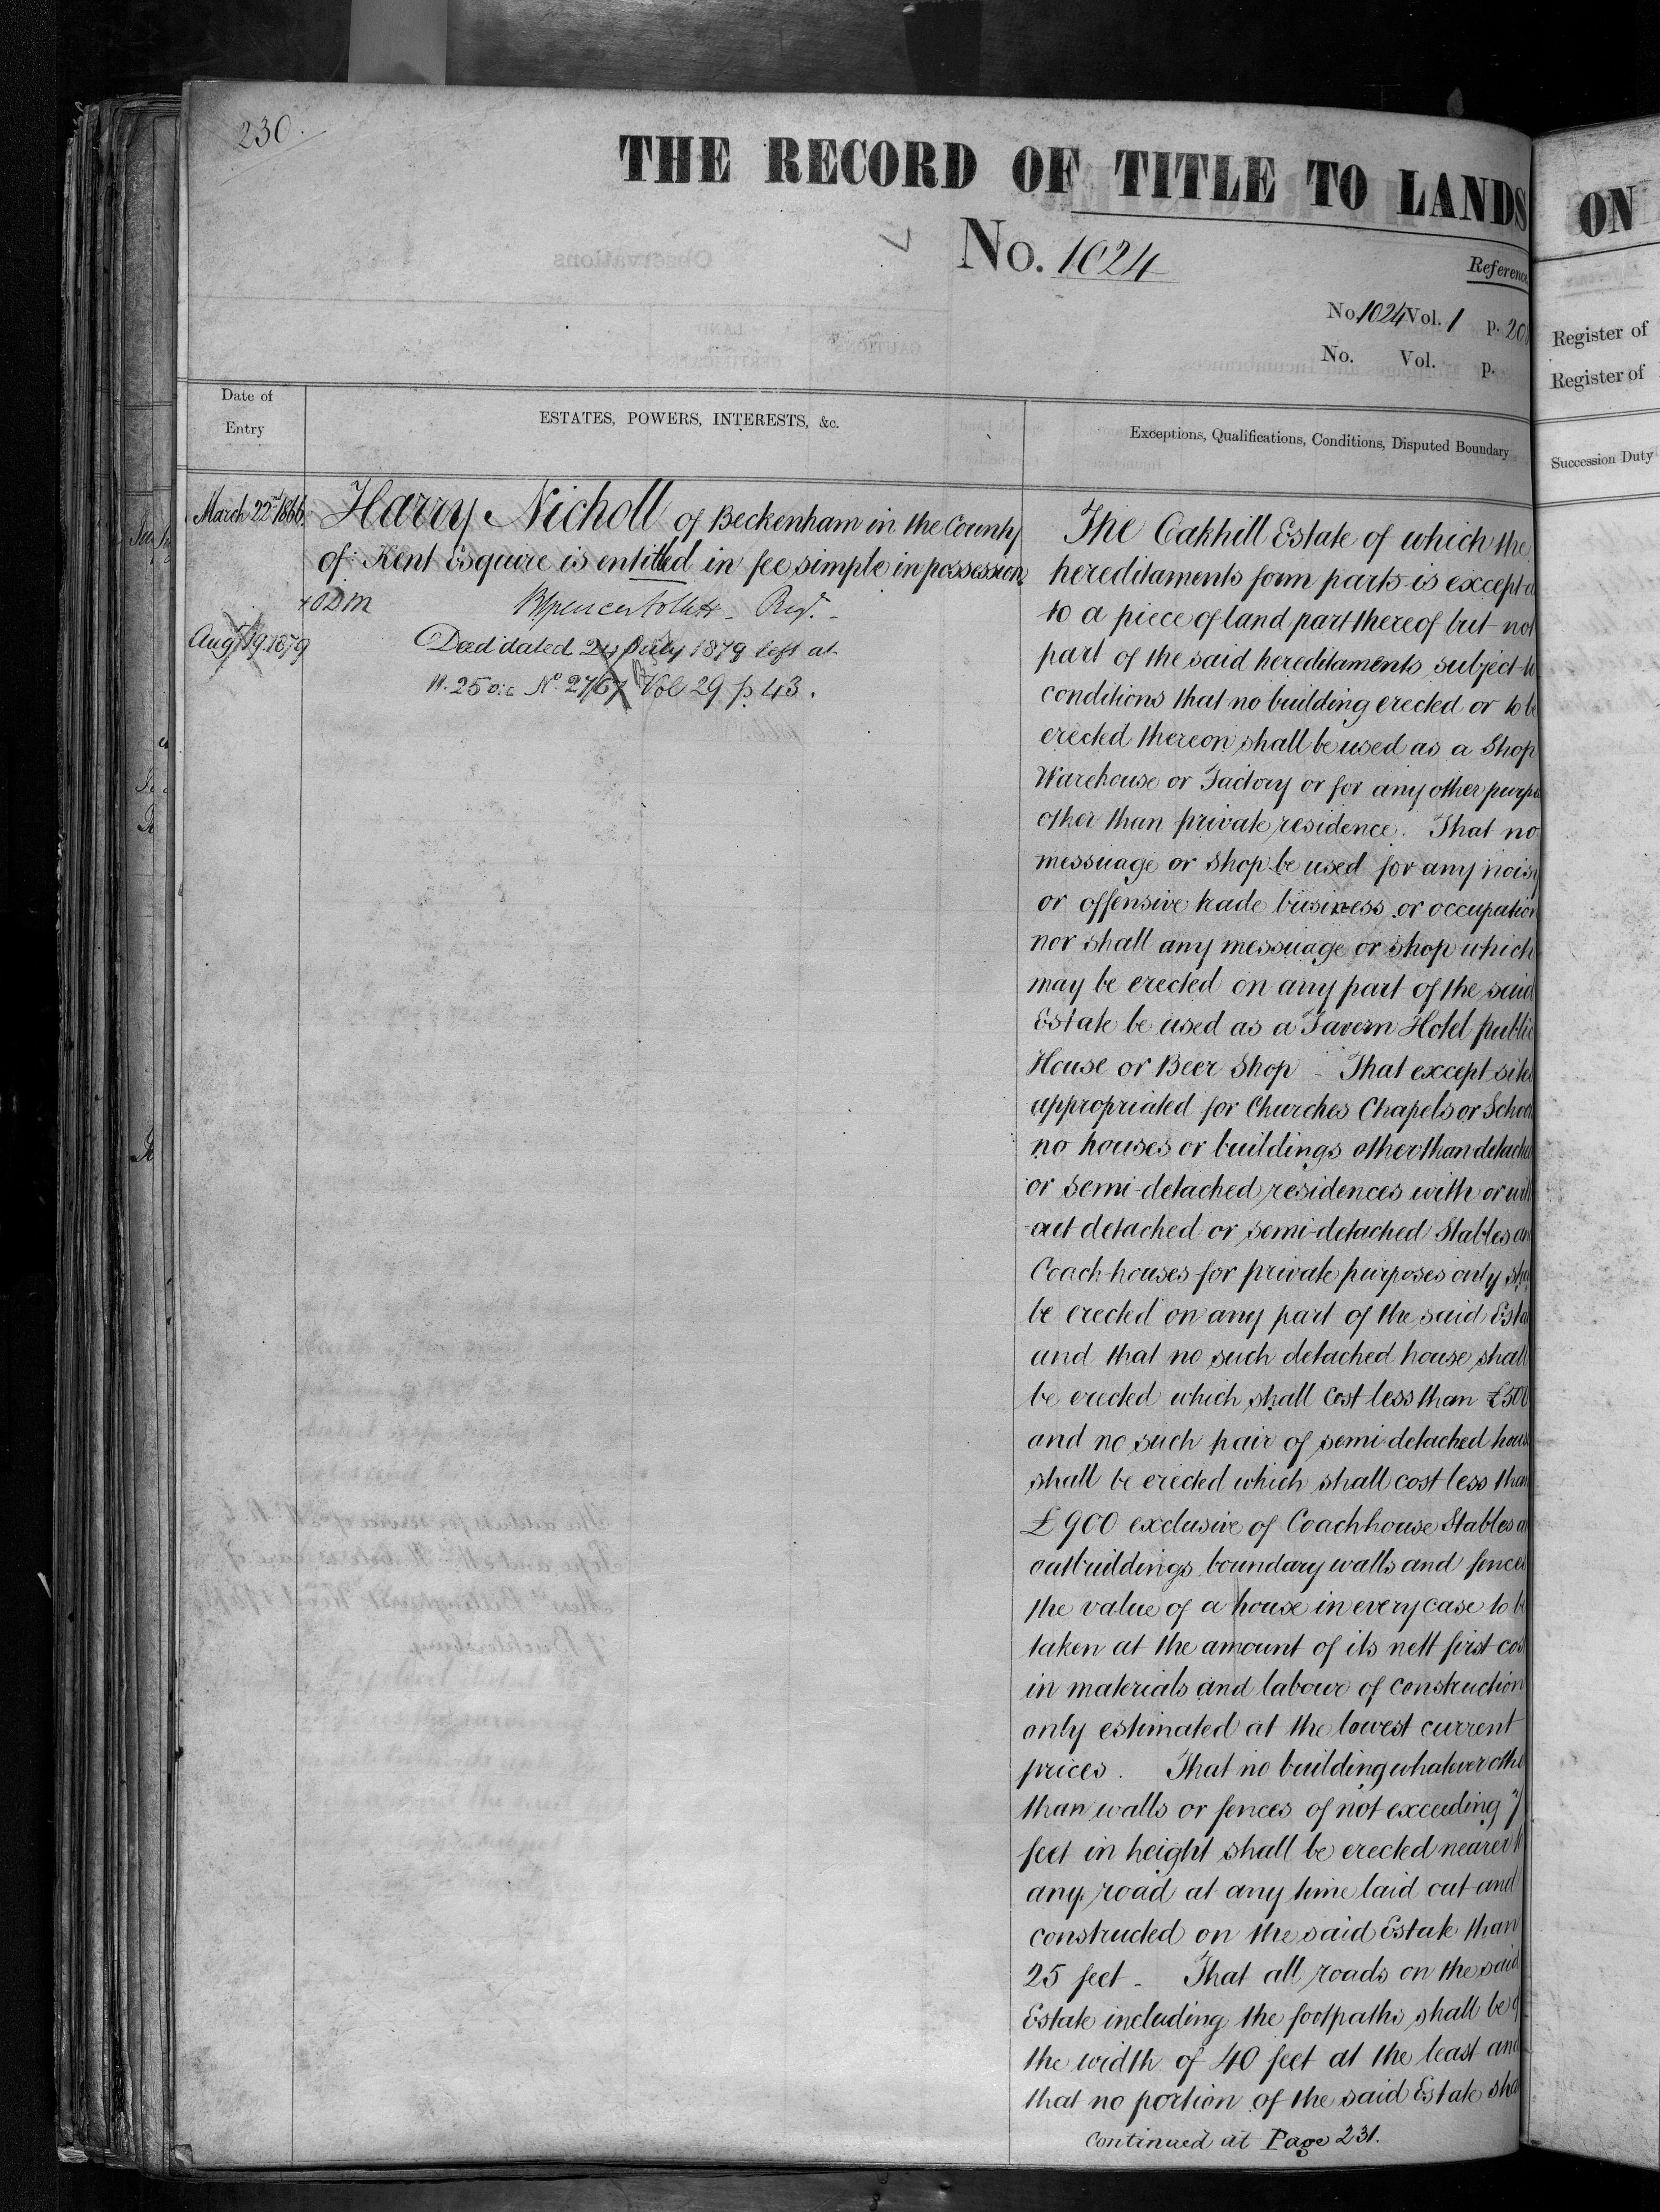 230.
THE RECORD OF TITLE TO LANDS
ON
No. 1024
Reference
No. 1024 Vol. 1 p. 20
No. Vol. p.
Register of
Register of
Date of
Entry
ESTATES, POWERS, INTERESTS, &c.
Exceptions, Qualifications, Conditions, Disputed Boundary
Succession Duty
March 22nd 1866.
Harry Nicholl of Beckenham in the County
of Kent Esquire is entitled in fee simple in possession
Regr.
Augt 19. 1879
Deed dated 24 July 1879 left at
11.25 No. 2767 Vol 29 p 43.
The Oakhill Estate of which the
hereditaments form parts is except
to a piece of land part thereof but not
part of the said hereditaments subject to
conditions that no building erected or to be
erected thereon shall be used as a Shop
Warehouse or Factory or for any other purpo
other than private residence. That no
messuage or shop be used for any noisy
or offensive trade business or occupation
nor shall any messuage or shop which
may be erected on any part of the said
Estate be used as a Tavern Hotel public
House or Beer Shop - That except sites
appropriated for Churches Chapels or School
no houses or buildings other than detached
or semi-detached residences with or with
-out detached or semi-detached Stables an
Coach-houses for private purposes only sha
be erected on any part of the said Esta
and that no such detached house shall
be erected which shall cost less than £500
and no such pair of semi-detached hous
shall be erected which shall cost less than
£900 exclusive of Coachhouse Stables a
outbuildings boundary walls and fences
the value of a house in every case to be
taken at the amount of its nett first cos
in materials and labour of construction
only estimated at the lowest current
prices. That no building whatever othe
than walls or fences of not exceeding 7
feet in height shall be erected nearer to
any road at any time laid out and
constructed on the said Estate than
25 feet - That all roads on the said
Estate including the footpaths shall be of
the width of 40 feet at the least and
that no portion of the said Estate sha
continued at Page 231.